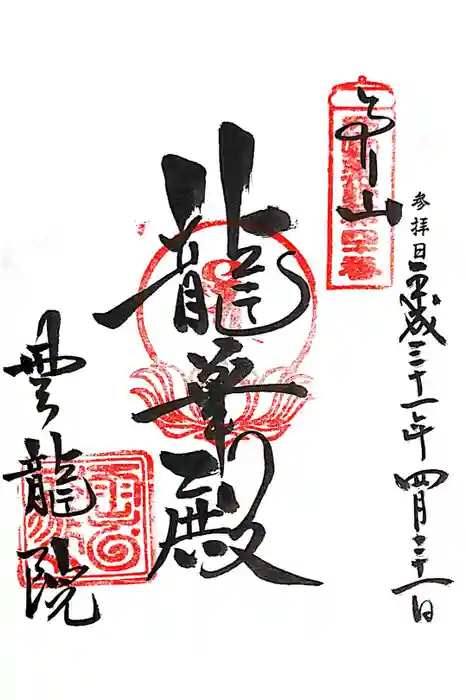 参拝日平成三十一年四月二十一日
泉山
龍華殿
雲龍院